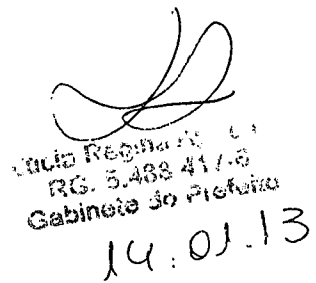 Regina
RG. 5.488 417-6
Gabinete do Prefeito
14.01.13